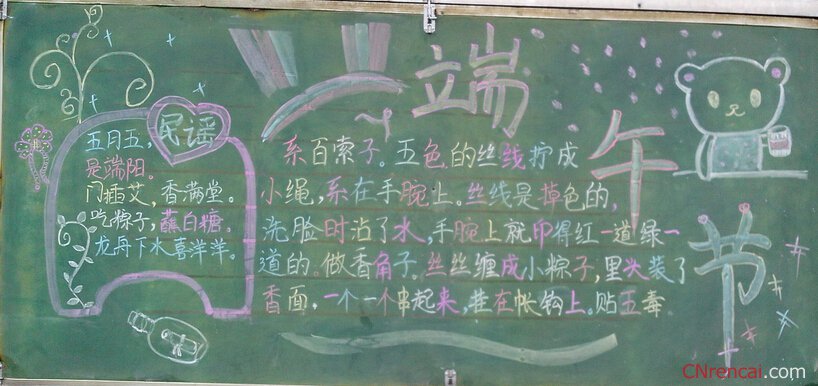 端午节
民谣
五月五，
是端阳。
门插艾，香满堂。
吃粽子，蘸白糖。
龙舟下水喜洋洋。
系百索子。五色的丝线拧成
小绳，系在手腕上。丝线是掉色的，
洗脸时沾了水，手腕上就印得红一道绿一
道的。做香角子。丝丝缠成小粽子，里头装了
香面，一个一个串起来，挂在帐钩上。贴五毒。
CNrencai.com